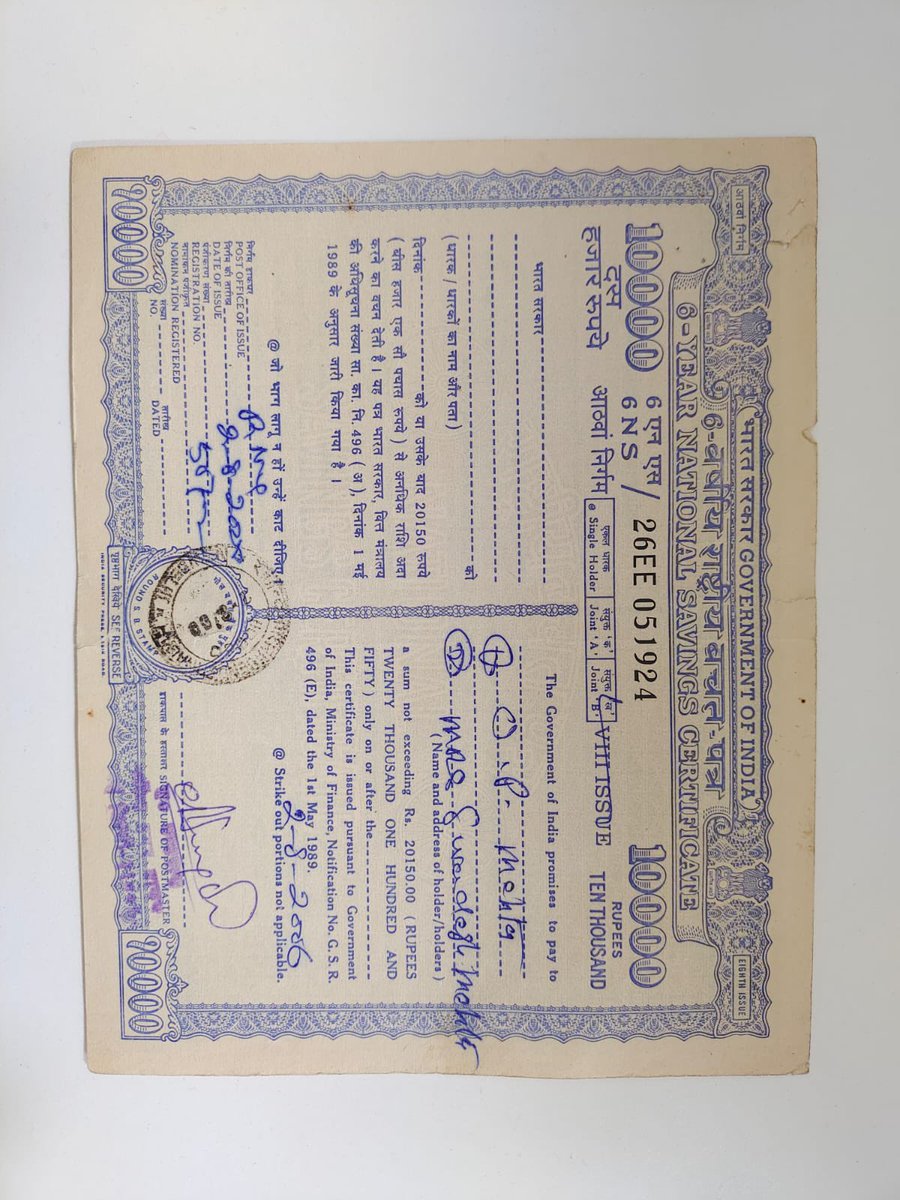 आठवां निर्गम
भारत सरकार GOVERNMENT OF INDIA
EIGHTH ISSUE
6-वर्षीय राष्ट्रीय बचत-पत्र
6-YEAR NATIONAL SAVINGS CERTIFICATE
10000 6 एन एस / 6 NS 26EE 051924 RUPEES 10000
दस हजार रुपये आठवां निर्गम
एकल धारक @ Single Holder संयुक्त 'क' Joint 'A' संयुक्त 'ख' Joint 'B'
VIII ISSUE TEN THOUSAND
भारत सरकार
(धारक / धारकों का नाम और पता)
को
दिनांक को या उसके बाद 20150 रुपये
(बीस हजार एक सौ पचास रुपये) से अनधिक राशि अदा
करने का वचन देती है। यह पत्र भारत सरकार, वित्त मंत्रालय
की अधिसूचना संख्या सा. का. नि. 496 (अ), दिनांक 1 मई
1989 के अनुसार जारी किया गया है।
@ जो भाग लागू न हों उन्हें काट दीजिए।
The Government of India promises to pay to
P. Mehta
(Name and address of holder/holders)
a sum not exceeding Rs. 20150.00 (RUPEES
TWENTY THOUSAND ONE HUNDRED AND
FIFTY) only on or after the 2-8-2006
This certificate is issued pursuant to Government
of India, Ministry of Finance, Notification No. G. S. R.
496 (E), dated the 1st May 1989.
@ Strike out portions not applicable.
निर्गम डाकघर
POST OFFICE OF ISSUE
निर्गम की तारीख
DATE OF ISSUE 2-8-2000
पंजीकरण संख्या
REGISTRATION NO.
नामांकन पंजीकृत
NOMINATION REGISTERED
संख्या NO. तारीख DATED
ROUND S B STAMP
डाकपाल के हस्ताक्षर SIGNATURE OF POSTMASTER
10000 पृष्ठभाग देखिये SEE REVERSE 10000
INDIA SECURITY PRESS